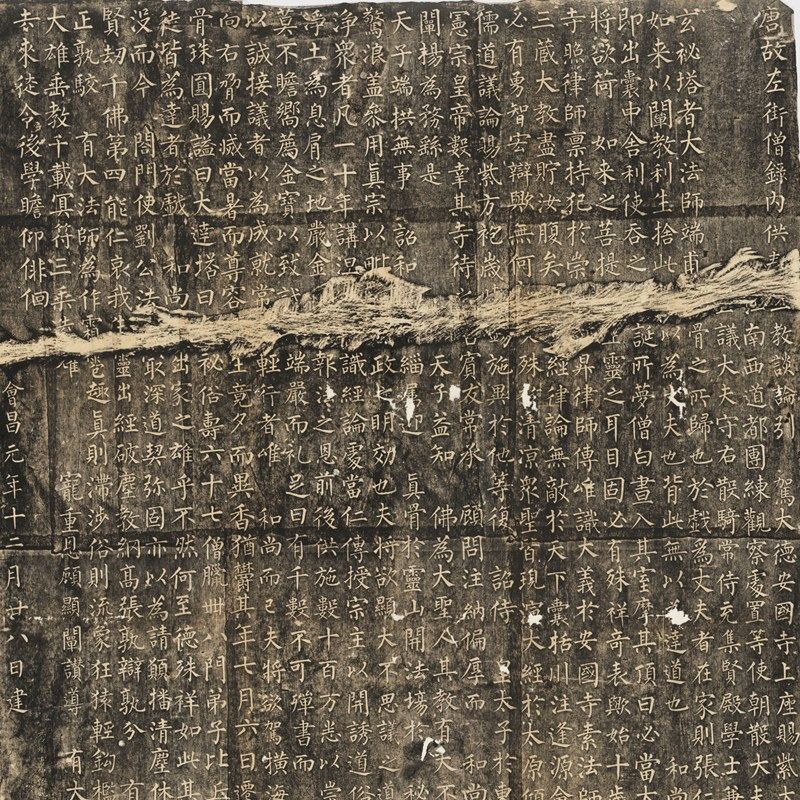 唐故左街僧錄內供 教談論引 駕大德安國寺上座賜紫大
南西道都團練觀察處置等使朝散大夫
議大夫守右散騎常侍充集賢殿學士兼
玄祕塔者大法師端甫 骨之所歸也於戲為丈夫者在家則張仁
如來以闡教利生捨此 以為丈夫也背此無以為達道也 和尚
即出囊中舍利使吞之 誕所夢僧白晝入其室摩其頂曰必當大
將欲荷 如來之菩提 靈之耳目固必有殊祥奇表歟始十歲
寺照律師稟持犯於崇 昇律師傳唯識大義於安國寺素法師
三藏大教盡貯汝腹矣 經律論無敵於天下囊括川注逢源會
必有勇智宏辯歟無何 殊於清涼衆聖皆現演大經於太原傾
儒道議論賜紫方袍歲時 施異於他等復 詔侍 皇太子於東
憲宗皇帝數幸其寺待之 賓友常承 顧問注納偏厚而 和尚
闡揚為務繇是 天子益知 佛為大聖人其教有大不
天子端拱無事 詔和 緇屬迎 真骨於靈山開法場於 秘
驚浪蓋參用真宗以毗 政之明効也夫將欲顯大不思議之道
淨衆者凡一十年講涅 識經論處當仁傳授宗主以開誘道俗
浮土為息肩之地嚴金 報法之恩前後供施數十百万悉以崇
莫不瞻嚮薦金寶以致誠 端嚴而礼足日有千數不可殫書而
以誠接議者以為成就常 輕行者唯 和尚而已夫將欲駕橫海
向右脅而滅當暑而尊容 生竟夕而異香猶鬱其年七月六日遷
骨珠圓賜謚曰大達塔曰 秘俗壽六十七僧臘卌八門弟子比丘
徒皆為達者於戲 和尚 出家之雄乎不然何至德殊祥如此其
沒而今 閤門使劉公法 最深道契弥固亦以為請願播清塵休
賢劫千佛第四能仁哀我 靈出經破塵教網高張孰辯孰分 有
正孰駮 有大法師為作霜 趣真則滯涉俗則流象狂猿輕鈎檻
大雄垂教千載冥符三乘 雄 寵重恩顧顯闡讚導 有大
去來徒令後學瞻仰俳徊
會昌元年十二月廿八日建